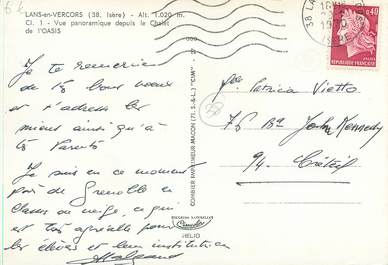 LANS-en-VERCORS (38. Isère) - Alt. 1.020 m.
Cl. 1 - Vue panoramique depuis le Chalet
de l'OASIS
Je te remercie
de tes bons voeux
et t'adresse les
miens ainsi qu'à
tes Parents
Je suis en ce moment
près de Grenoble en
classes de neige, ce qui
est très agréable pour
les élèves et leur institutrice
COMBIER IMPRIMEUR MACON (71. S.-&-L.) "CIM"
HELIO
0,40
REPUBLIQUE FRANÇAISE
Patricia Vietto
75 Bd John Kennedy
94. Créteil